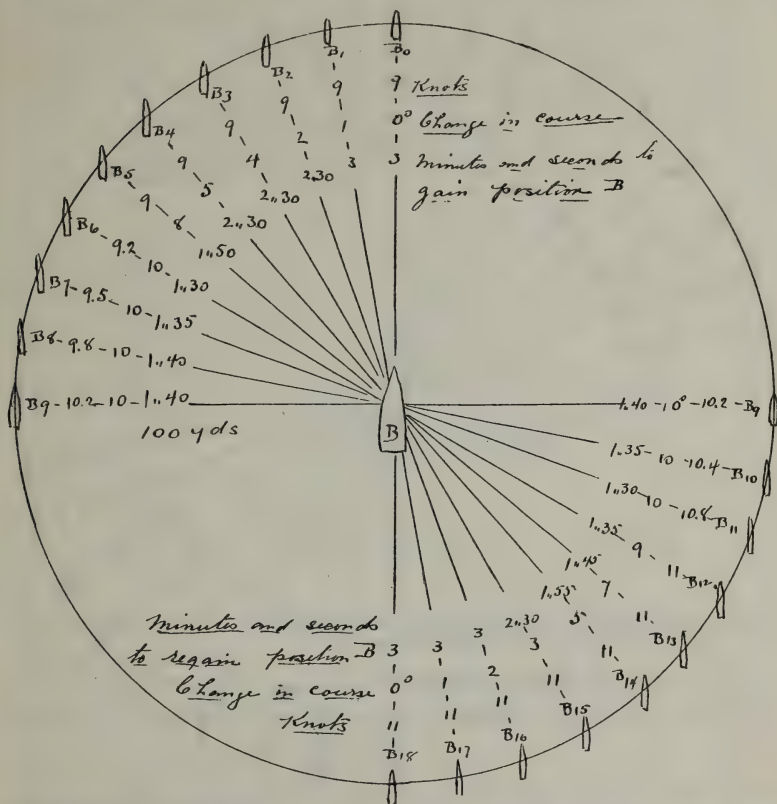 B0
9 Knots
0° Change in course
3 Minutes and seconds to
gain position B
B1 - 9 - 1 - 3
B2 - 9 - 2 - 2,,30
B3 - 9 - 4 - 2,,30
B4 - 9 - 5 - 2,,30
B5 - 9 - 8 - 1,,50
B6 - 9.2 - 10 - 1,,30
B7 - 9.5 - 10 - 1,,35
B8 - 9.8 - 10 - 1,,40
B9 - 10.2 - 10 - 1,,40
100 yds
B
1,,40 - 10° - 10.2 - B9
1,,35 - 10 - 10.4 - B10
1,,30 - 10 - 10.8 - B11
1,,35 - 9 - 11 - B12
1,,45 - 7 - 11 - B13
1,,55 - 5 - 11 - B14
2,,30 - 3 - 11 - B15
3 - 2 - 11 - B16
3 - 1 - 11 - B17
Minutes and seconds
to regain position B 3
Change in course 0°
Knots 11
B18